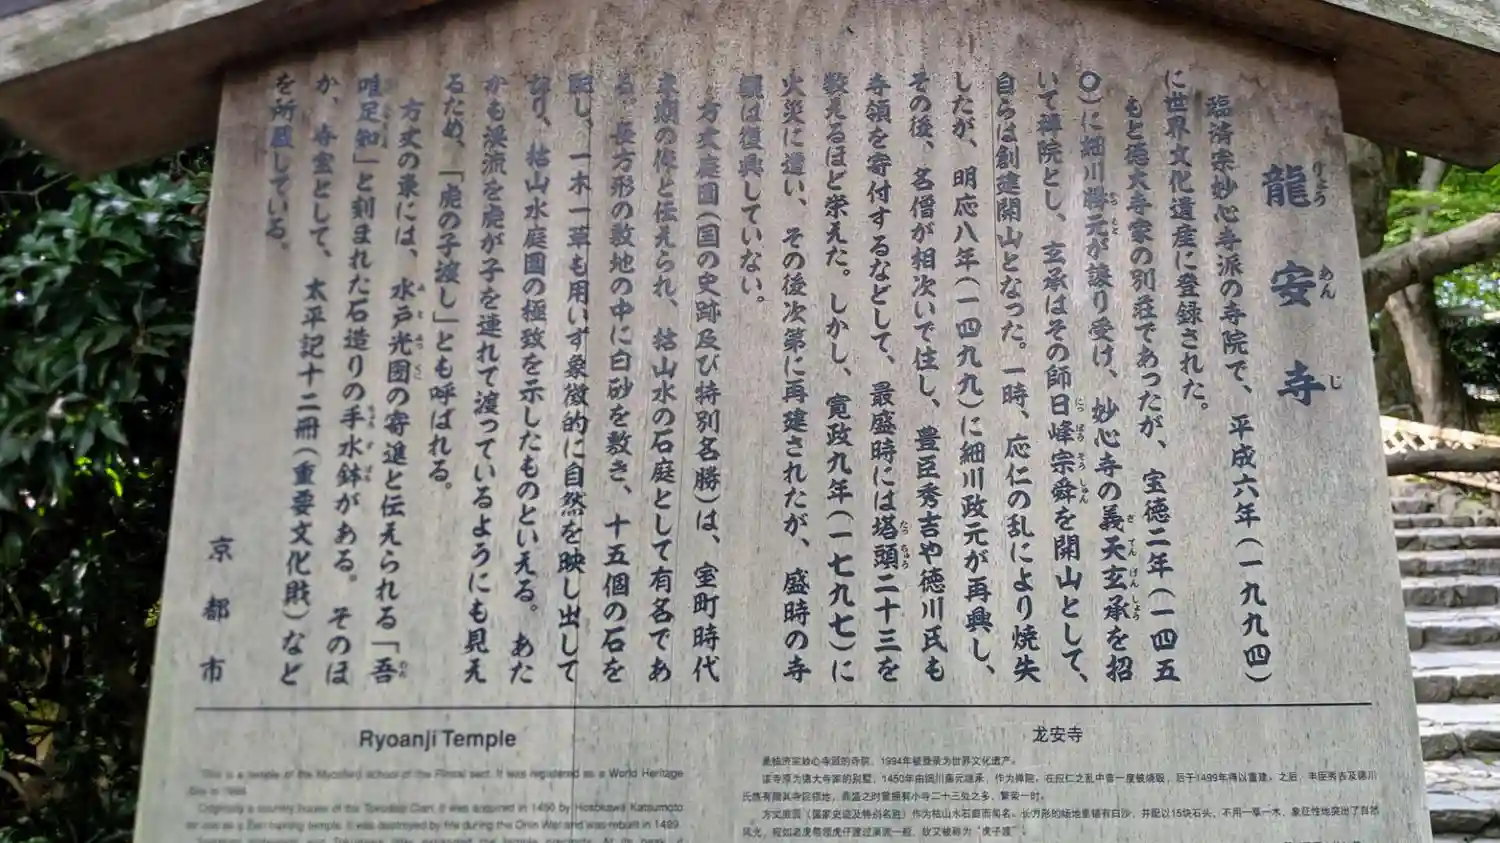 龍安寺
りょうあんじ
臨済宗妙心寺派の寺院で、平成六年(一九九四)
に世界文化遺産に登録された。
もと徳大寺家の別荘であったが、宝徳二年(一四五
〇)に細川勝元が譲り受け、妙心寺の義天玄承を招
いて禅院とし、玄承はその師日峰宗舜を開山として、
自らは創建開山となった。一時、応仁の乱により焼失
したが、明応八年(一四九九)に細川政元が再興し、
その後、名僧が相次いで住し、豊臣秀吉や徳川氏も
寺領を寄付するなどして、最盛時には塔頭二十三を
数えるほど栄えた。しかし、寛政九年(一七九七)に
火災に遭い、その後次第に再建されたが、盛時の寺
観は復興していない。
方丈庭園(国の史跡及び特別名勝)は、室町時代
末期の作と伝えられ、枯山水の石庭として有名であ
る。長方形の敷地の中に白砂を敷き、十五個の石を
配し、一木一草も用いず象徴的に自然を映し出して
おり、枯山水庭園の極致を示したものといえる。あた
かも渓流を虎が子を連れて渡っているようにも見え
るため、「虎の子渡し」とも呼ばれる。
方丈の東には、水戸光圀の寄進と伝えられる「吾
唯足知」と刻まれた石造りの手水鉢がある。そのほ
か、寺宝として、太平記十二冊(重要文化財)など
を所蔵している。
京都市
Ryoanji Temple
This is a temple of the Myoshinji school of the Rinzai sect. It was registered as a World Heritage
Site in 1994.
Originally a country house of the Tokudaiji Clan, it was acquired in 1450 by Hosokawa Katsumoto
Zen training temple. It was destroyed by fire during the Onin War and was rebuilt in 1499.
龙安寺
是临济宗妙心寺派的寺院，1994年被登录为世界文化遗产。
该寺原为德大寺家的别墅，1450年由细川胜元继承，作为禅院。在应仁之乱中曾一度被烧毁，后于1499年得以重建。之后，丰臣秀吉及德川
氏族有赠其寺院领地，鼎盛之时曾拥有小寺二十三处之多，繁荣一时。
方丈庭园（国家史迹及特别名胜）作为枯山水石庭而闻名。长方形的场地里铺有白沙，并配以15块石头，不用一草一木，象征性地突出了自然
风光，宛如老虎带领虎仔渡过溪流一般，故又被称为“虎子渡”。